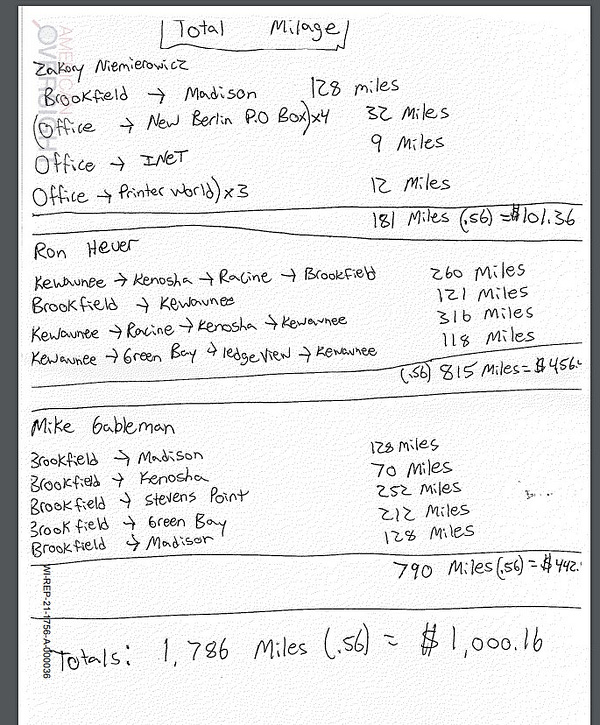 Total Milage
AMERICAN
OVERSIGHT
Zakory Niemierowicz
Brookfield → Madison 128 miles
(Office → New Berlin P.O Box)x4 32 Miles
Office → INET 9 Miles
Office → Printer world)x3 12 Miles
181 Miles (.56) = $101.36
Ron Heuer
Kewaunee → Kenosha → Racine → Brookfield 260 Miles
Brookfield → Kewaunee 121 Miles
Kewaunee → Racine → Kenosha → Kewaunee 316 Miles
Kewaunee → Green Bay → ledgeview → Kewaunee 118 Miles
(.56) 815 Miles = $456.
Mike Gableman
Brookfield → Madison 128 Miles
Brookfield → Kenosha 70 Miles
Brookfield → Stevens Point 252 Miles
Brookfield → Green Bay 212 Miles
Brookfield → Madison 128 Miles
790 Miles (.56) = $442.
Totals: 1,786 Miles (.56) = $1,000.16
WI-REP-21-1756-A-000036